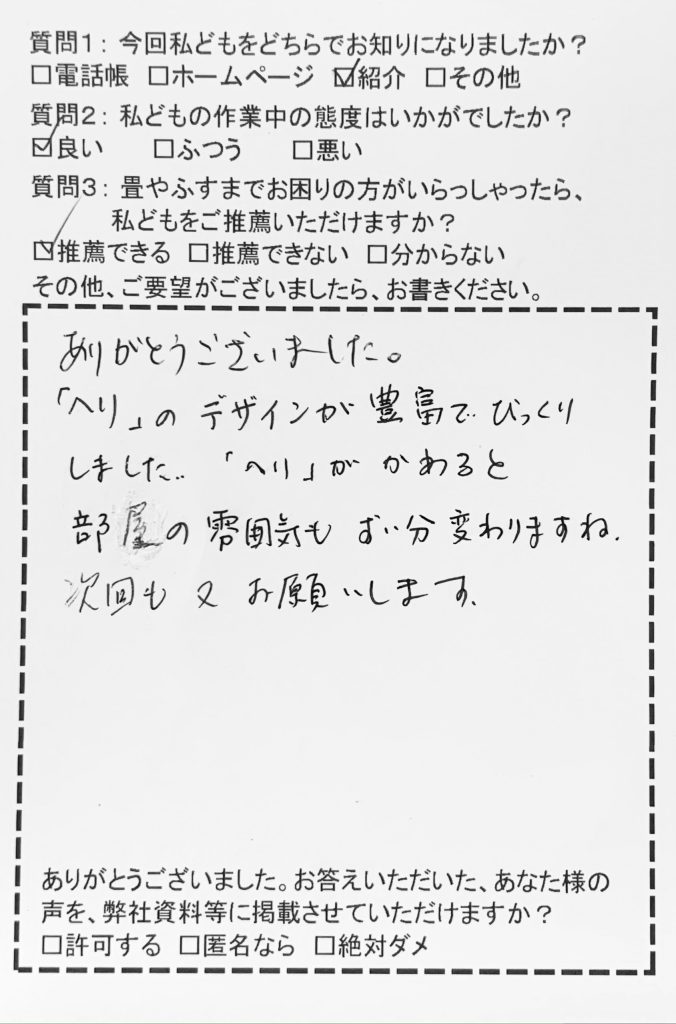 質問1：今回私どもをどちらでお知りになりましたか？
□電話帳 □ホームページ ☑紹介 □その他
質問2：私どもの作業中の態度はいかがでしたか？
☑良い □ふつう □悪い
質問3：畳やふすまでお困りの方がいらっしゃったら、
私どもをご推薦いただけますか？
☑推薦できる □推薦できない □分からない
その他、ご要望がございましたら、お書きください。
ありがとうございました。
「ヘリ」の デザインが 豊富で びっくり
しました。 「ヘリ」が かわると
部屋の 雰囲気も ずい分 変わりますね。
次回も 又 お願いします。
ありがとうございました。お答えいただいた、あなた様の
声を、弊社資料等に掲載させていただけますか？
□許可する □匿名なら □絶対ダメ